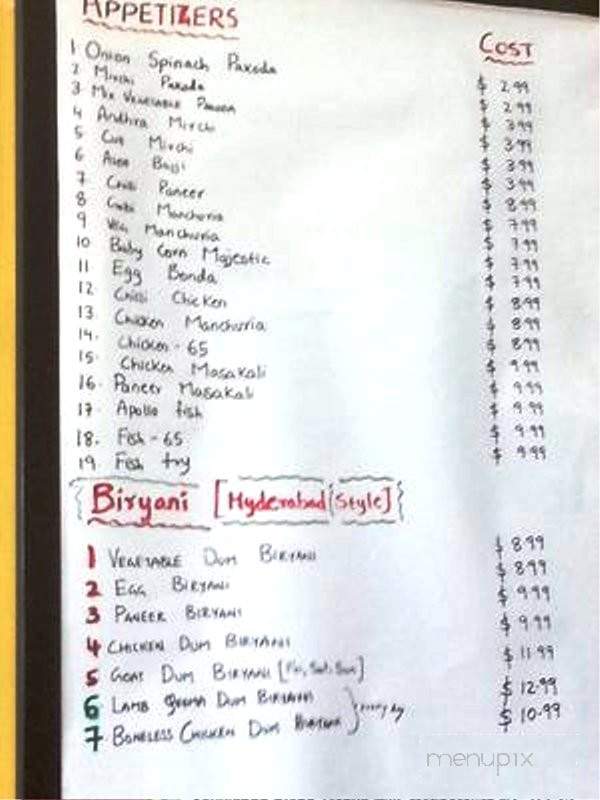 APPETIZERS COST
1 Onion Spinach Pakoda $ 2.99
2 Mirchi Pakoda $ 2.99
3 Mix Vegetable Pakoda $ 3.99
4 Andhra Mirchi $ 3.99
5 Cut Mirchi $ 3.99
6 Aloo Bajji $ 3.99
7 Chilli Paneer $ 8.99
8 Gobi Manchuria $ 7.99
9 Veg Manchuria $ 7.99
10 Baby Corn Majestic $ 7.99
11 Egg Bonda $ 7.99
12 Chilli Chicken $ 8.99
13. Chicken Manchuria $ 8.99
14. Chicken - 65 $ 8.99
15. Chicken Masakali $ 9.99
16. Paneer Masakali $ 9.99
17. Apollo fish $ 9.99
18. Fish - 65 $ 9.99
19. Fish fry $ 9.99
Biryani [Hyderabad Style]
1 VEGETABLE DUM BIRYANI $ 8.99
2 EGG BIRYANI $ 8.99
3 PANEER BIRYANI $ 9.99
4 CHICKEN DUM BIRYANI $ 9.99
5 GOAT DUM BIRYANI [Fri, Sat, Sun] $ 11.99
6 LAMB DUM BIRYANI $ 12.99
7. BONELESS CHICKEN DUM BIRYANI } everyday $ 10.99
menupix